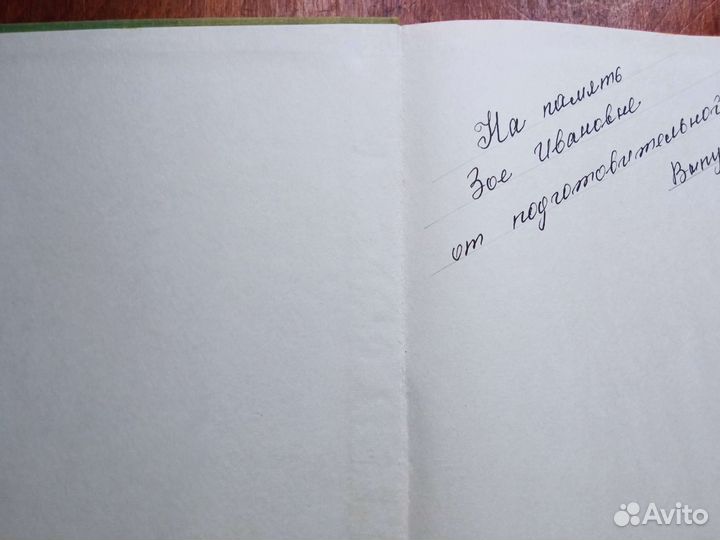 На память
Зое Ивановне
от подготовительной
Выпу
Avito